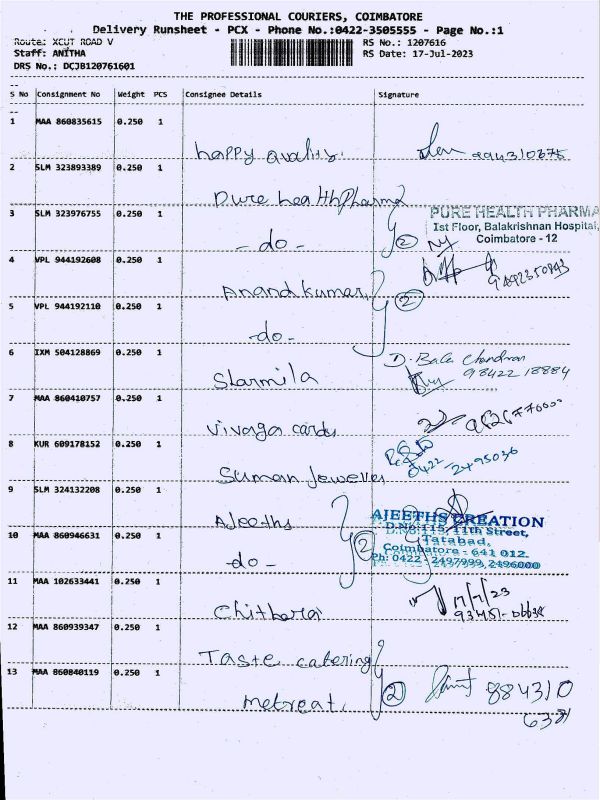 THE PROFESSIONAL COURIERS, COIMBATORE
Delivery Runsheet - PCX - Phone No.:0422-3505555 - Page No.:1
Route: XCUT ROAD V
RS No.: 1207616
Staff: ANITHA
RS Date: 17-Jul-2023
DRS No.: DCJB120761601
S No Consignment No Weight PCS Consignee Details Signature
1 MAA 860835615 0.250 1
happy quality.
2 SLM 323893389 0.250 1
Pure health Pharma
3 SLM 323976755 0.250 1
PURE HEALTH PHARMA
Ist Floor, Balakrishnan Hospital,
Coimbatore - 12
- do - 2
4 VPL 944192608 0.250 1
Anand kumar, 2
5 VPL 944192110 0.250 1
-do-
6 IXM 504128869 0.250 1
D. Bala Chandran
98422 18884
Sharmila
7 MAA 860410757 0.250 1
Vivarga cards
8 KUR 609178152 0.250 1
0422-2495036
Suman Jewelles
9 SLM 324132208 0.250 1
Ajeeths
AJEETHS CREATION
D.No:115, 11th Street,
10 MAA 860946631 0.250 1
Tatabad,
Coimbatore - 641 012.
Ph: 0422 - 2497999, 2496000
-do- 2
11 MAA 102633441 0.250 1
17/7/23
Chithara
12 MAA 860939347 0.250 1
Taste catering
13 MAA 860840119 0.250 1
metreat, 2 884310
6381